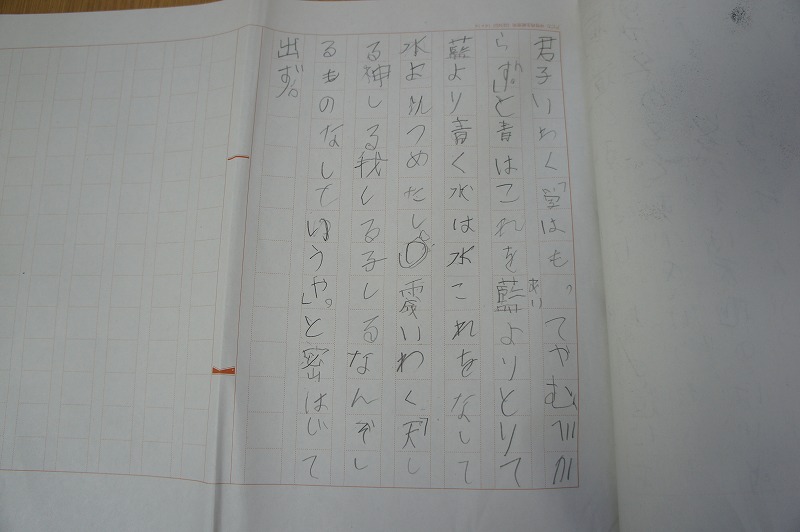 君子いわく「学はもってやむべか
らず。」と青はこれを藍よりとりて
あい
藍より青く水は水これをなして
水よりつめたし。震いわく「天し
る神しる我しる子しるなんぞし
るものなしていゆうや。」と密はじて
出ず。